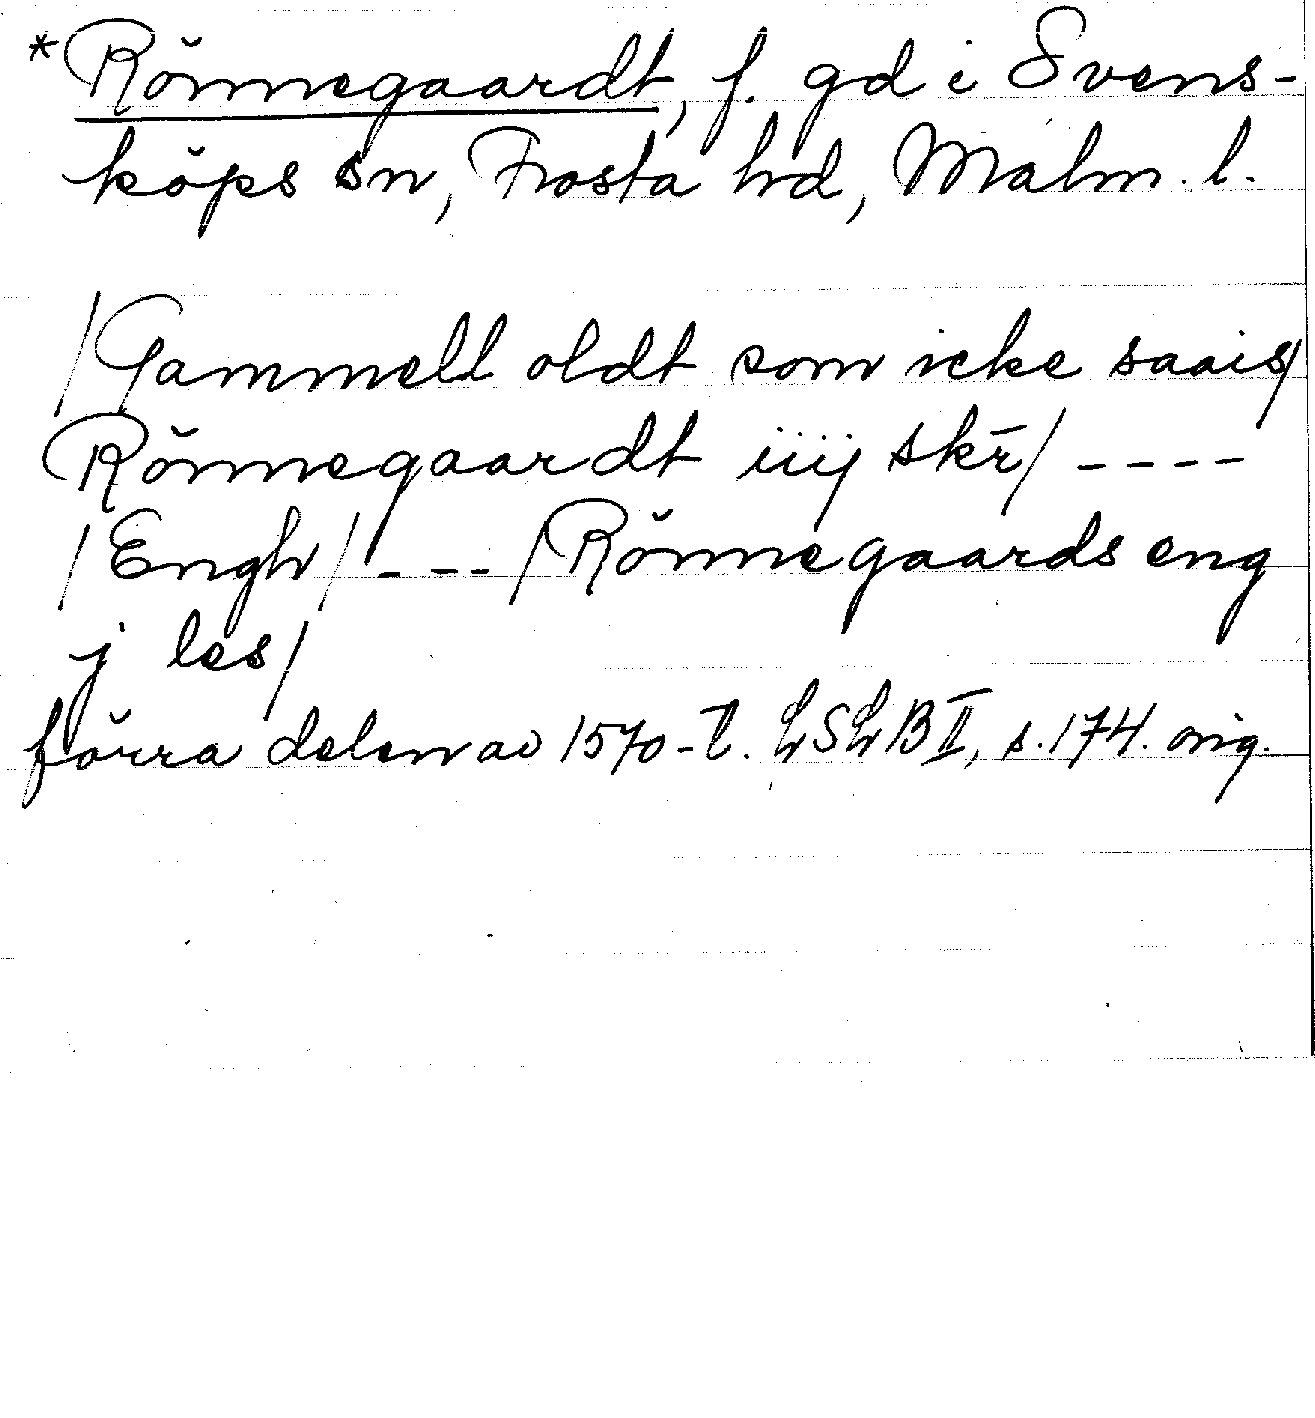 *Rönnegaardt, f. gd i Svens-
köps sn, Frosta hd, Malm. l.
/Gammell oldt som icke saais/
Rönnegaardt iiij skr̄/ ----
/Engh/ --- /Rönnegaards eng
j les/
förra delen av 1570-t. LSLB II, s. 174. orig.